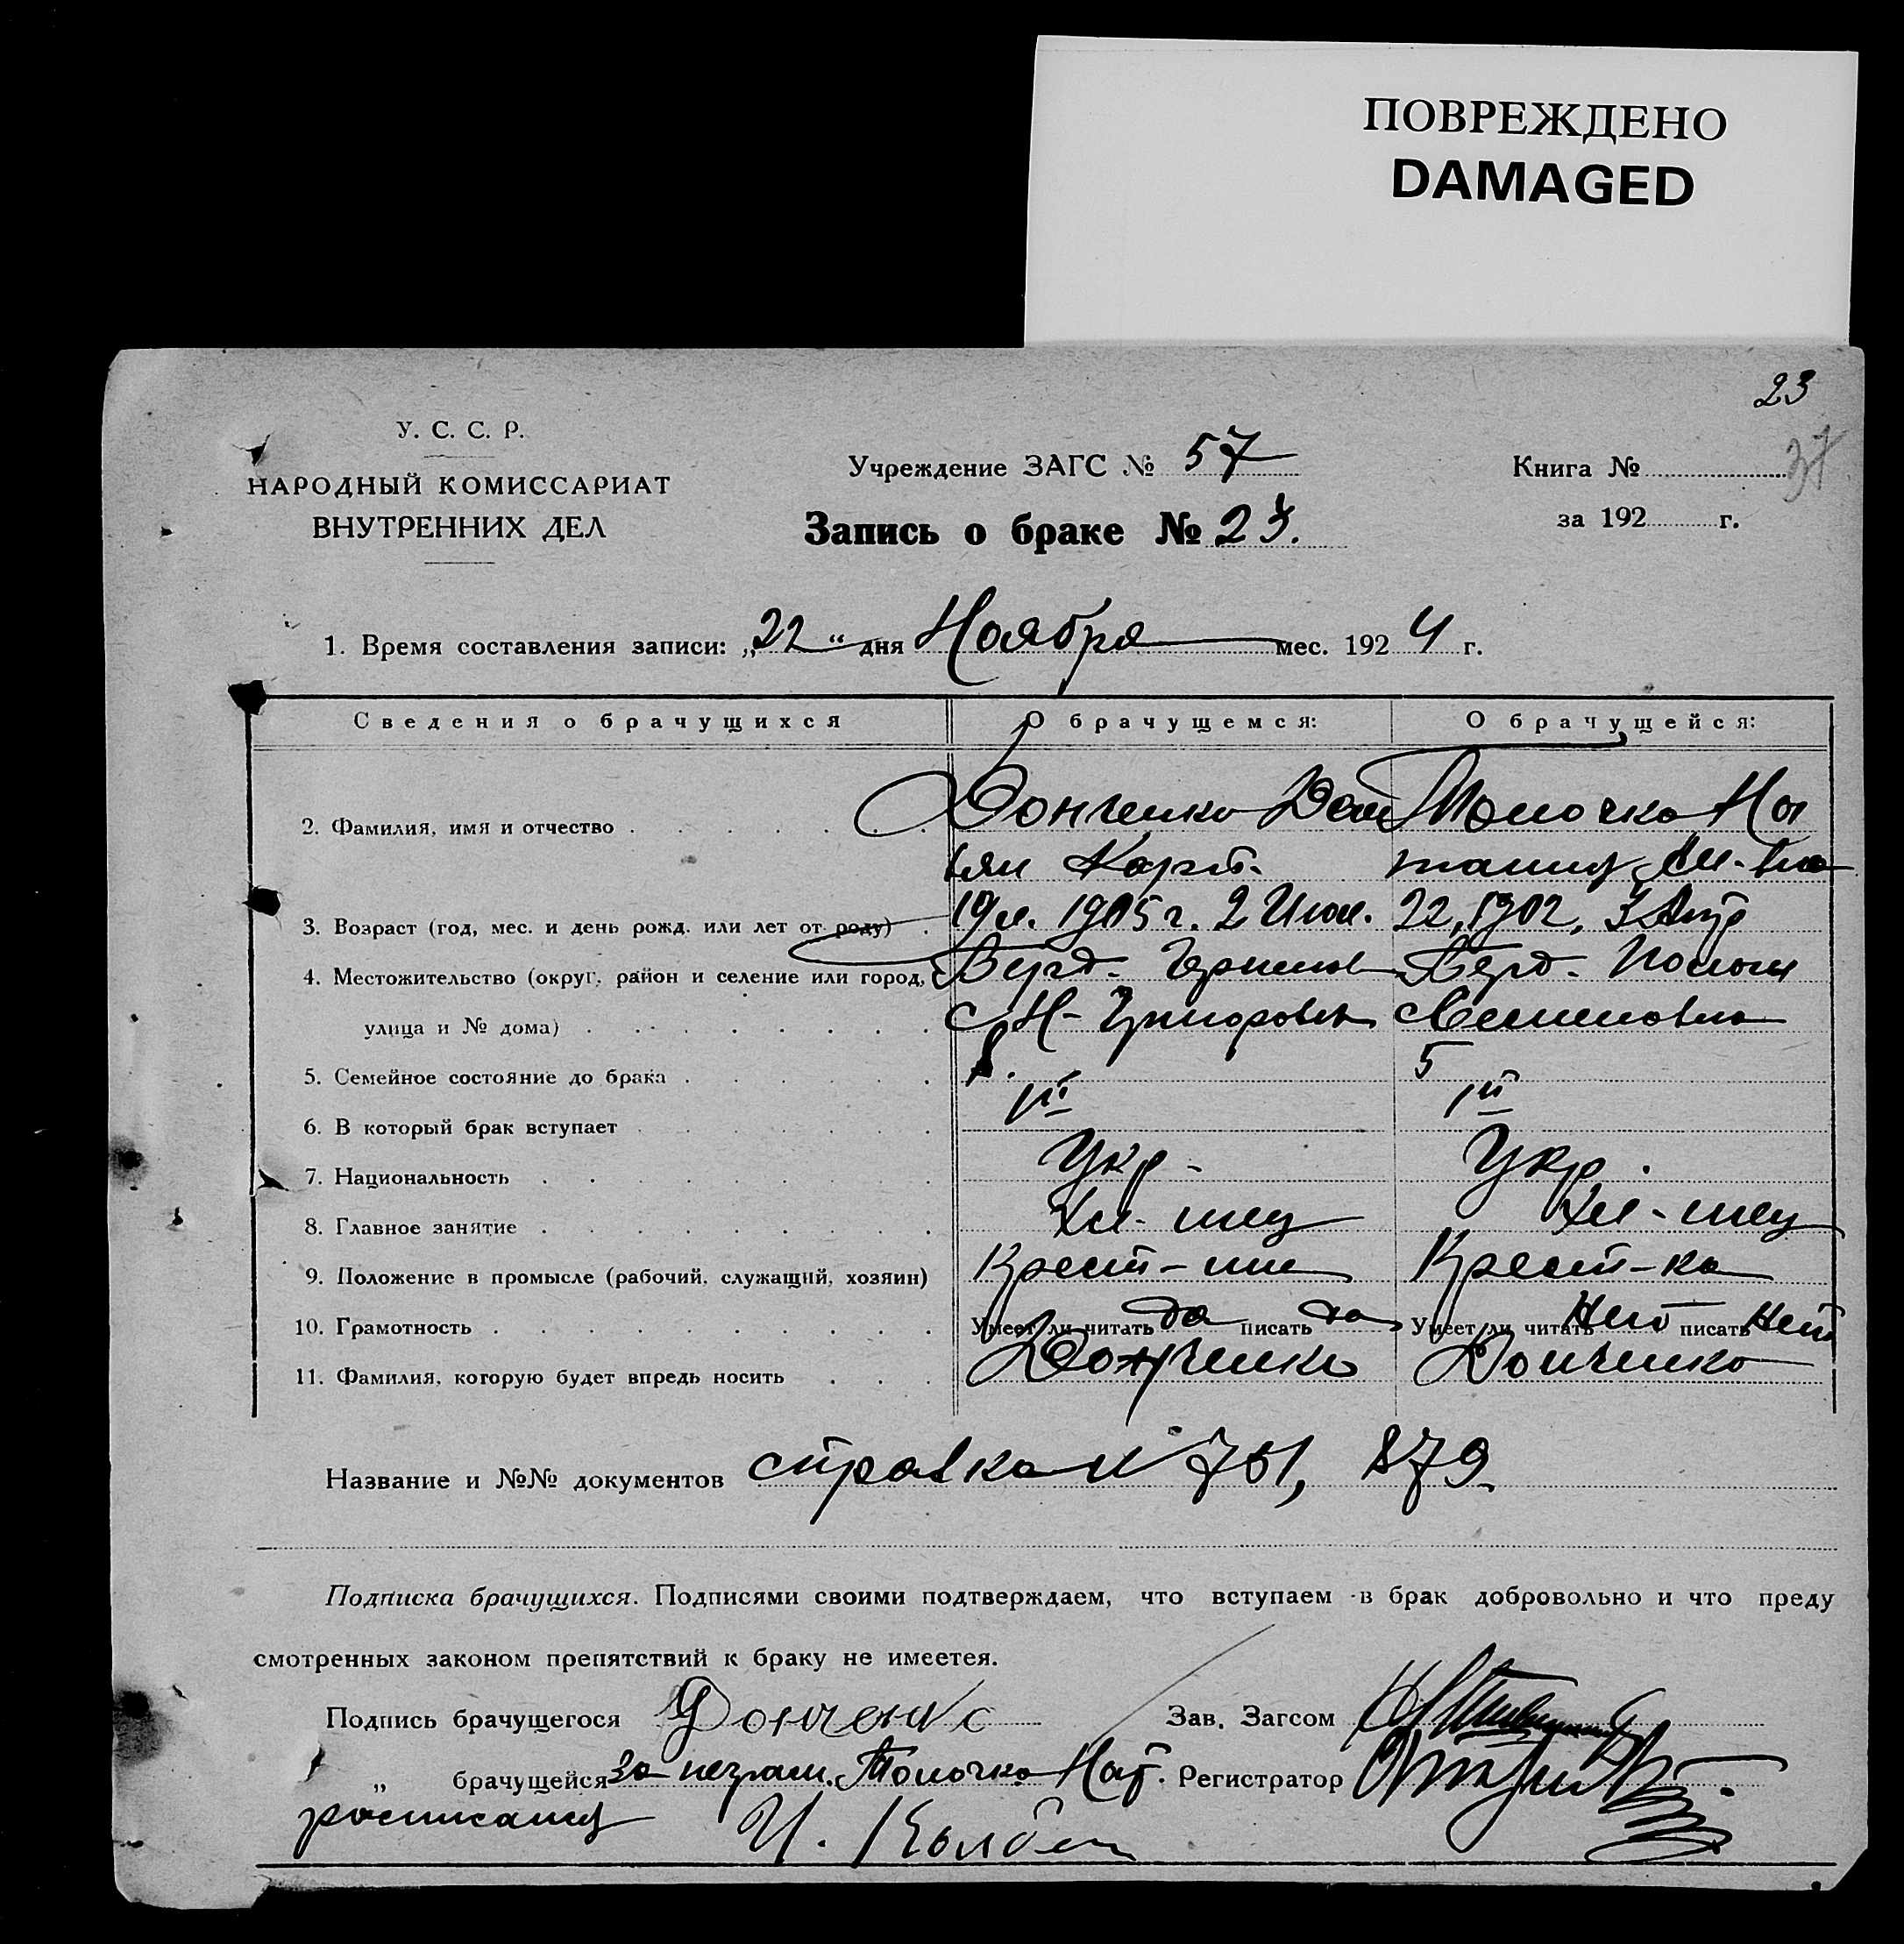 ПОВРЕЖДЕНО
DAMAGED
23
37
У. С. С. Р.
НАРОДНЫЙ КОМИССАРИАТ
ВНУТРЕННИХ ДЕЛ
Учреждение ЗАГС № 57
Книга №
Запись о браке № 23.
за 192 г.
1. Время составления записи: „22“ дня Ноября мес. 1924 г.
Сведения о брачущихся О брачущемся: О брачущейся:
2. Фамилия, имя и отчество Донченко Демьян Карп. Толочко На
3. Возраст (год, мес. и день рожд. или лет от роду) 19 л. 1905 г. 2 Июл. 22, 1902, 3 Апр
4. Местожительство (округ, район и селение или город, Берд. Берд. Пологи
улица и № дома) с Н-Григоровка Семеновка
5. Семейное состояние до брака 5
6. В который брак вступает 1й 1й
7. Национальность Укр - Укр.
8. Главное занятие Хл-шец Хл-шец
9. Положение в промысле (рабочий, служащий, хозяин) Крест-нин Крест-ка
10. Грамотность Умеет ли читать да писать да Умеет ли читать Нет писать Нет
11. Фамилия, которую будет впредь носить Донченко Донченко
Название и №№ документов справка № 751, 879.
Подписка брачущихся. Подписями своими подтверждаем, что вступаем в брак добровольно и что преду
смотренных законом препятствий к браку не имеется.
Подпись брачущегося Донченко Зав. Загсом
„ брачущейся за неграм. Толочко Нат. Регистратор
росписался И.